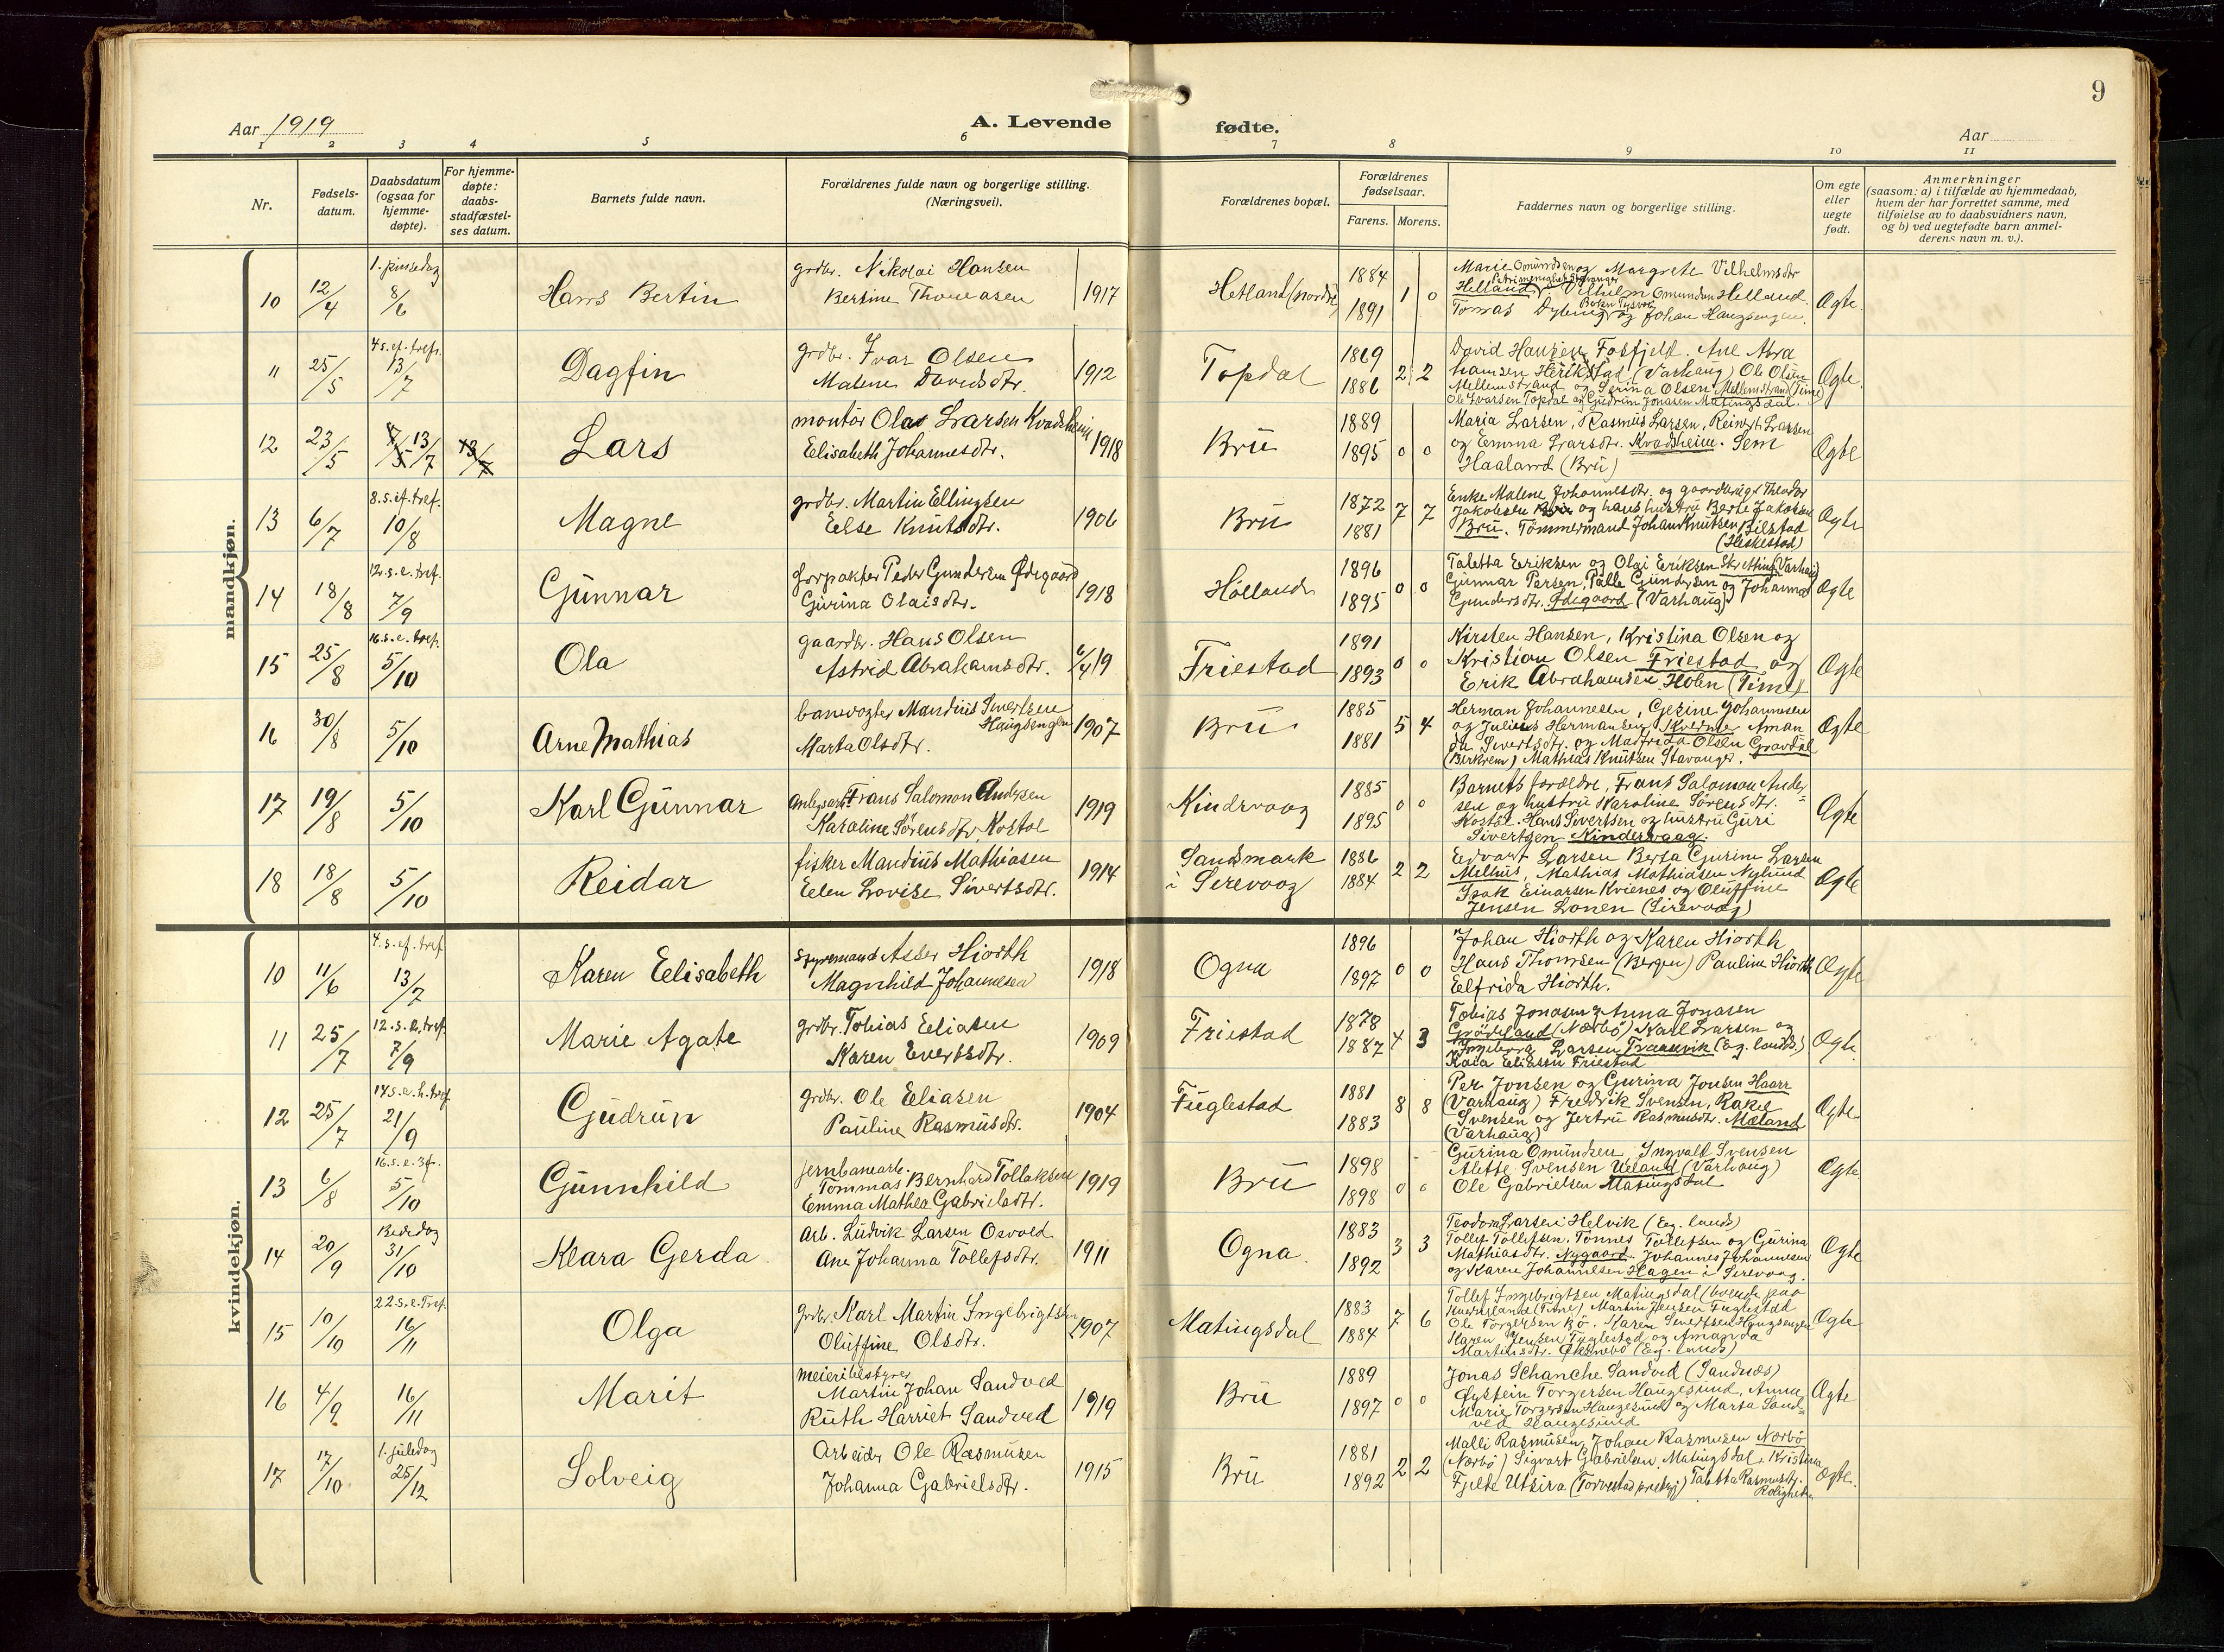 9
Aar 1919
A. Levende fødte.
Aar
1 2 3 4 5 6 7 8 9 10 11
Nr.
Fødsels-
datum.
Daabsdatum
(ogsaa for
hjemme-
døpte).
For hjemme-
døpte:
daabs-
stadfæstel-
ses datum.
Barnets fulde navn.
Forældrenes fulde navn og borgerlige stilling.
(Næringsvei).
Forældrenes bopæl.
Forældrenes
fødselsaar.
Farens. Morens.
Faddernes navn og borgerlige stilling.
Om egte
eller
uegte
født.
Anmerkninger
(saasom: a) i tilfælde av hjemmedaab,
hvem der har forrettet samme, med
tilføielse av to daabsvidners navn,
og b) ved uegtefødte barn anmel-
derens navn m. v.).
mandkjøn.
10 12/4 1. pinsedag 8/6 Hans Bertin
grdbr. Nikolai Hansen
Bertine Thomasen 1917
Hetland (nordre) 1884 1891 1 0
Marie Omundsen og Margrete Vilhelmsdtr
Helland, Vilhelm Omundsen Helland.
Tomas Dybing og Johan Haugsengen.
Ægte.
11 25/5 4. s. ef. tref. 13/7 Dagfin
grdbr. Ivar Olsen
Malene Davidsdtr. 1912
Topdal 1869 1886 2 2
David Hansen Fosfjeld. Ane Abra
hamsen Herikstad (Varhaug) Ole Olsen
Mellemstrand og Serina Olsen Mellemstrand (Time)
Ole Ivarsen Topdal og Gudrun Jonasen Matingsdal.
Ægte.
12 23/5 13/7 13/7 Lars
montør Olav Larsen Kvadsheim
Elisabeth Johannesdtr. 1918
Brü 1889 1895 0 0
Maria Larsen, Rasmus Larsen, Reinert Larsen
og Emma Larsdtr. Kvadsheim. Sem
Haaland (Brü)
Ægte
13 6/7 8. s. ef. tref. 10/8 Magne
grdbr. Martin Ellingsen
Eelse Knutsdtr. 1906
Brü 1872 1881 7 7
Enke Malene Johannesdtr. og gaardbruger Theodor
Jakobsen Brü og hans hustru Berte Jakobsen
Brü. Tømmermand Johan Knutsen Bilstad
(Heskestad)
Ægte
14 18/8 12. s. e. tref. 7/9 Gunnar
forpakter Peder Gundersen Ødegaard
Gurina Olaisdtr. 1918
Hølland 1896 1895 0 0
Taletta Eriksen og Olai Eriksen Skretting (Varhaug)
Gunnar Persen, Palle Gundersen og Johanna
Gundersdtr. Ødegaard (Varhaug)
Ægte
15 25/8 16. s. e. tref. 5/10 Ola
gaardbr. Hans Olsen
Astrid Abrahamsdtr. 6/4 19
Friestad 1891 1893 0 0
Kirsten Hansen, Kristina Olsen og
Kristian Olsen Friestad og
Erik Abrahamsen Holen (Time)
Ægte
16 30/8 5/10 Arne Mathias
banevogter Mandius Sivertsen
Haugsengen
Marta Olsdtr. 1907
Brü 1885 1881 5 4
Herman Johannesen, Gesine Johannesen
og Julius Hermansen, Kverme Aman
da Sivertsdtr. og Madfrida Olsen Gravdal
(Berkrem) Mathias Knutsen Stavanger.
Ægte
17 19/8 5/10 Karl Gunnar
Anlegsarb. Frans Salomon Andersen
Karoline Sørensdtr Kostøl 1919
Kindervaag 1885 1895 0 0
Barnets forældre, Frans Salomon Ander-
sen og hustru Karoline Sørensdtr.
Kostøl. Hans Sivertsen og hustru Guri
Sivertsen Kindervaag.
Ægte
18 18/8 5/10 Reidar
fisker Mandius Mathiasen
Eelen Lovise Sivertsdtr. 1914
Sandsmark
i Serevaag 1886 1884 2 2
Edvart Larsen Berta Gurine Larsen
Melhus, Mathias Mathiasen Nylund
Isak Einarsen Kvienes og Oluffine
Jensen Lonen (Sirevaag)
Ægte
kvindekjøn.
10 11/6 4. s. ef. tref 13/7 Karen Eelisabeth
styremand Asser Hiorth
Magnhild Johannesen 1918
Ogna 1896 1897 0 0
Johan Hiorth og Karen Hiorth
Hans Thomsen (Bergen) Pauline Hiorth
Eelfrida Hiorth.
Ægte
11 25/7 12. s. e. tref. 7/9 Marie Agate
grdbr. Tobias Eeliasen
Karen Evertsdtr. 1909
Friestad 1878 1887 4 3
Tobias Jonasen og Anna Jonasen
Grødeland (Nærbø) Karl Larsen og
Ingeborg Larsen Traasvik (Eg. lands)
Kaia Eliasen Friestad
Ægte.
12 25/7 14 s. e. h. tref 21/9 Gudrun
grdbr. Ole Eeliasen
Pauline Rasmusdtr. 1904
Fuglestad 1881 1883 8 8
Per Jonsen og Gurina Jonsen Haarr
(Varhaug) Fredrik Svensen, Rakel
Svensen og Jertru Rasmusdtr. Mæland
(Varhaug)
Ægte
13 6/8 16. s. e. 3f. 5/10 Gunnhild
jernbanearb.
Tommas Bernhard Tollaksen
Emma Mathea Gabrielsdtr. 1919
Brü 1898 1898 0 0
Gurina Omundsen, Ingvald Svensen
Alette Svensen Ueland (Varhaug)
Ole Gabrielsen Matingsdal
Ægte
14 20/9 Bededag 31/10 Klara Gerda.
Arb. Ludvik Larsen Osvold
Ane Johanna Tollefsdtr. 1911
Ogna. 1883 1892 3 3
Teodora Larsen Helvik (Eg. lands)
Tollef Tollefsen, Tønnes Tollefsen og Gurina
Mathiasdtr. Nygaard. Johannes Johannesen
og Karen Johannesen Hagen i Serevaag.
Ægte
15 10/10 22. s. e. Tref. 16/11 Olga
grdbr. Karl Martin Ingebrigtsen
Oluffine Olsdtr. 1907
Matingsdal 1883 1884 7 6
Tollef Ingebrigtsen Matingsdal (boende paa
(Time) Martin Jensen Fuglestad
Ole Torgersen Bø. Karen Sivertsen Haugsengen
Karen Jensen Fuglestad og Amanda
Martinsdtr. Øksnebø (Eg. lands)
Ægte
16 4/9 16/11 Marit
meieribestyrer
Martin Johan Sandved
Ruth Harriet Sandved 1919
Brü 1889 1897 0 0
Jonas Schanche Sandved (Sandnæs)
Øystein Torgersen Haugesund, Anna
Marie Torgersen Haugesund og Marta Sand-
ved Haugesund
Ægte
17 17/10 1. juledag 25/12 Solveig
Arbeider Ole Rasmusen
Johanna Gabrielsdtr. 1915
Brü 1881 1892 2 2
Malli Rasmusen, Johan Rasmusen Nærbø
(Nærbø) Sigvart Gabrielsen Matingsdal, Kristina
Fjelte Utsira (Torvestad prestegj) Taletta Rasmusdtr.
Roligheten
Ægte.